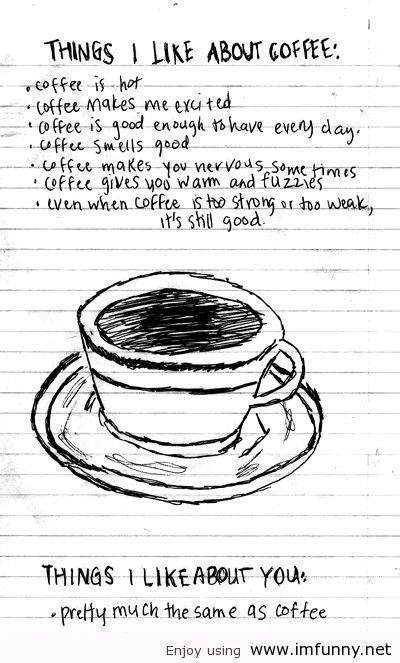 THINGS I LIKE ABOUT COFFEE:
• coffee is hot
• coffee makes me excited
• coffee is good enough to have every day.
• coffee smells good
• coffee makes you nervous sometimes
• coffee gives you warm and fuzzies
• even when coffee is too strong or too weak,
it's still good.
THINGS I LIKE ABOUT YOU:
• pretty much the same as coffee
Enjoy using www.imfunny.net